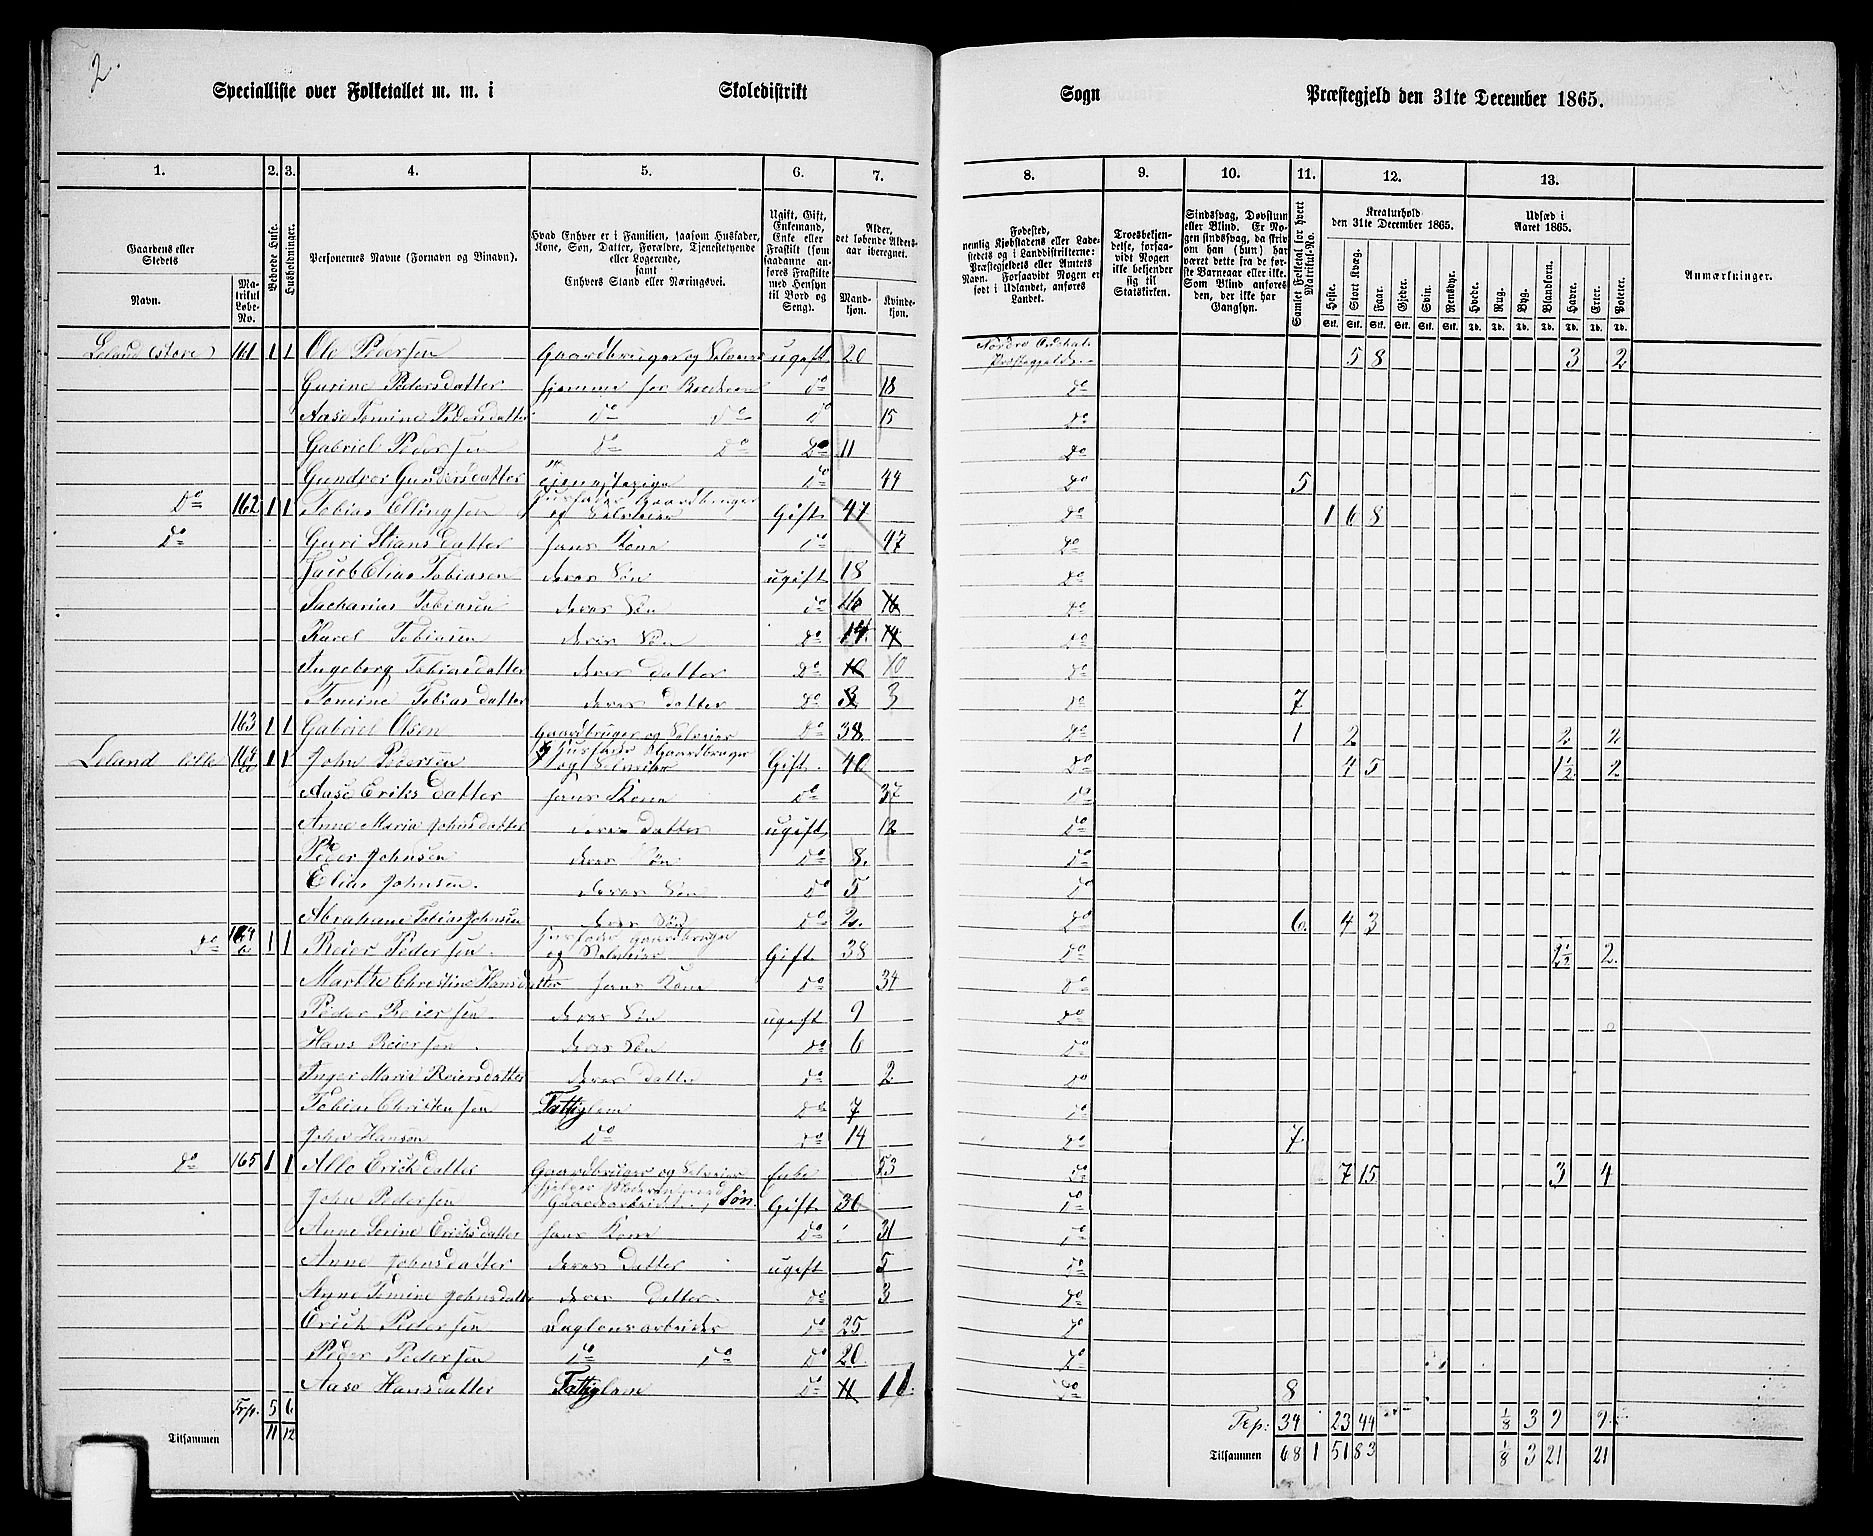 2.
Specialliste over Folketallet m. m. i Skoledistrikt Sogn Præstegjeld den 31te December 1865.
1. 2. 3. 4. 5. 6. 7. 8. 9. 10. 11. 12. 13.
Gaardens eller Stedets
Navn.
Matrikul Løbe-No.
Beboede Huse.
Husholdninger.
Personernes Navne (Fornavn og Binavn).
Hvad Enhver er i Familien, saasom Husfader, Kone, Søn, Datter, Forældre, Tjenestetyende eller Logerende, samt Enhvers Stand eller Næringsvei.
Ugift, Gift, Enkemand, Enke eller Fraskilt (som saadanne anføres Fraskilte med Hensyn til Bord og Seng).
Alder, det løbende Aldersaar iberegnet.
Mandkjøn. Kvindekjøn.
Fødested, nemlig Kjøbstadens eller Ladestedets og i Landdistrikterne: Præstegjeldets eller Amtets Navn. Forsaavidt Nogen er født i Udlandet, anføres Landet.
Troesbekjendelse, forsaavidt Nogen ikke bekjender sig til Statskirken.
Sindssvag, Døvstum eller Blind. Er Nogen sindssvag, da skriv om han (hun) har været dette fra de første Barneaar eller ikke. Som Blind anføres den, der ikke har Gangsyn.
Samlet Folketal for hvert Matrikul-No.
Kreaturhold den 31te December 1865.
Heste. Stort Kvæg. Faar. Gjeder. Svin. Rensdyr.
Stk. Stk. Stk. Stk. Stk. Stk.
Udsæd i Aaret 1865.
Hvede. Rug. Byg. Blandkorn. Havre. Erter. Poteter.
Td. Td. Td. Td. Td. Td. Td.
Anmærkninger.
Leland store 161 1 1 Ole Pedersen Gaardbruger og Selveier ugift 20 Nordre Præstegjeld 5 8 3 2
Gurine Pedersdatter hjemme for do 18 do
Aase Tomine Pedersdatter do do do 15 do
Gabriel Pedersen do do do 11 do
Gundvor Gundersdatter Tjenestepige do 44 do 5
do 162 1 1 Tobias Ellingsen Husfader Gaardbruger og Selveier Gift 47 do 1 6 8
do Guri Stiansdatter hans Kone do 47 do
Jacob Elias Tobiasen deres Søn ugift 18 do
Sacharias Tobiasen deres Søn do 16 16 do
Karel Tobiasen deres Søn do 14 14 do
Ingeborg Tobiasdatter deres datter do 10 10 do
Tomine Tobiasdatter deres datter do 3 3 do 7
163 1 1 Gabriel Olsen Gaardbruger og Selveier do 38 do 1 2 2 2
Leland lille 164 a 1 1 John Pedersen Husfader Gaardbruger og Selveier Gift 40 do 4 5 1½ 2
Aase Eriksdatter hans Kone do 37 do
Anne Maria Johnsdatter deres datter ugift 12 do
Peder Johnsen deres Søn do 8 do
Elias Johnsen deres Søn do 5 do
Abraham Tobias Johnsen deres Søn do 2 do 6 4 3
do 164 b 1 1 Reier Pedersen Husfader gaardbruger og Selveier Gift 38 do 1½ 2
Marthe Christine Hansdatter hans Kone do 34 do
Peder Reiersen deres Søn ugift 9 do
Hans Reiersen deres Søn do 6 do
Inger Marie Reiersdatter deres datter do 2 do
Tobias Christensen Fattiglem do 7 do
John Hansen do do 14 do 7
do 165 1 1 Alle Erichsdatter Gaardbruger og Selveier Enke 53 do 7 15 3 4
John Pedersen hjelper Moderen med Gaardsarbeidet, Søn Gift 36 do
Anne Serine Ericksdatter hans Kone do 31 do
Anne Johnsdatter deres datter ugift 5 do
Anne Tomine Johnsdatter deres datter do 3 do
Erich Pedersen Daglønsarbeider do 25 do
Peder Pedersen do do do 20 do
Aase Hansdatter Fattiglem do 11 11 do 8
Trp. 5 6 Trp: 34 23 44 ⅛ 3 9 9
Tilsammen 11 12 Tilsammen 68 1 51 83 ⅛ 3 21 21